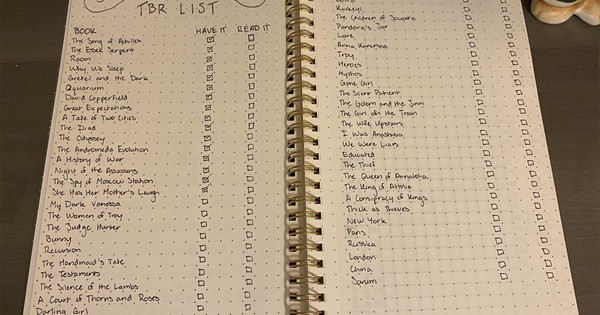 TBR LIST
BOOK HAVE IT READ IT
The Song of Achilles
The Essex Serpent
Room
Why We Sleep
Gretel and the Dark
Aquarium
David Copperfield
Great Expectations
A Tale of Two Cities
The Iliad
The Odyssey
The Andromeda Evolution
A History of War
Night of the Assassins
The Spy of Moscow Station
She Has Her Mother's Laugh
My Dark Vanessa
The Women of Troy
The Judge Hunter
Bunny
Recursion
The Handmaid's Tale
The Testaments
The Silence of the Lambs
A Court of Thorns and Roses
Darling Girl
Kaikeyi
The Children of Jocasta
Pandora's Jar
Lore
Anna Karenina
Troy
Heroes
Mythos
Gone Girl
The Silent Patient
The Golem and the Jinni
The Girl on the Train
The Wife Upstairs
I Was Anastasia
We Were Liars
Educated
The Thief
The Queen of Attolia
The King of Attolia
A Conspiracy of Kings
Thick as Thieves
New York
Paris
Russka
London
China
Sarum